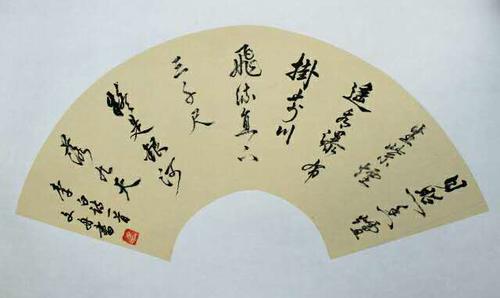 日照香爐
生紫煙
遙看瀑布
掛前川
飛流直下
三千尺
疑是銀河
落九天
李白詩一首